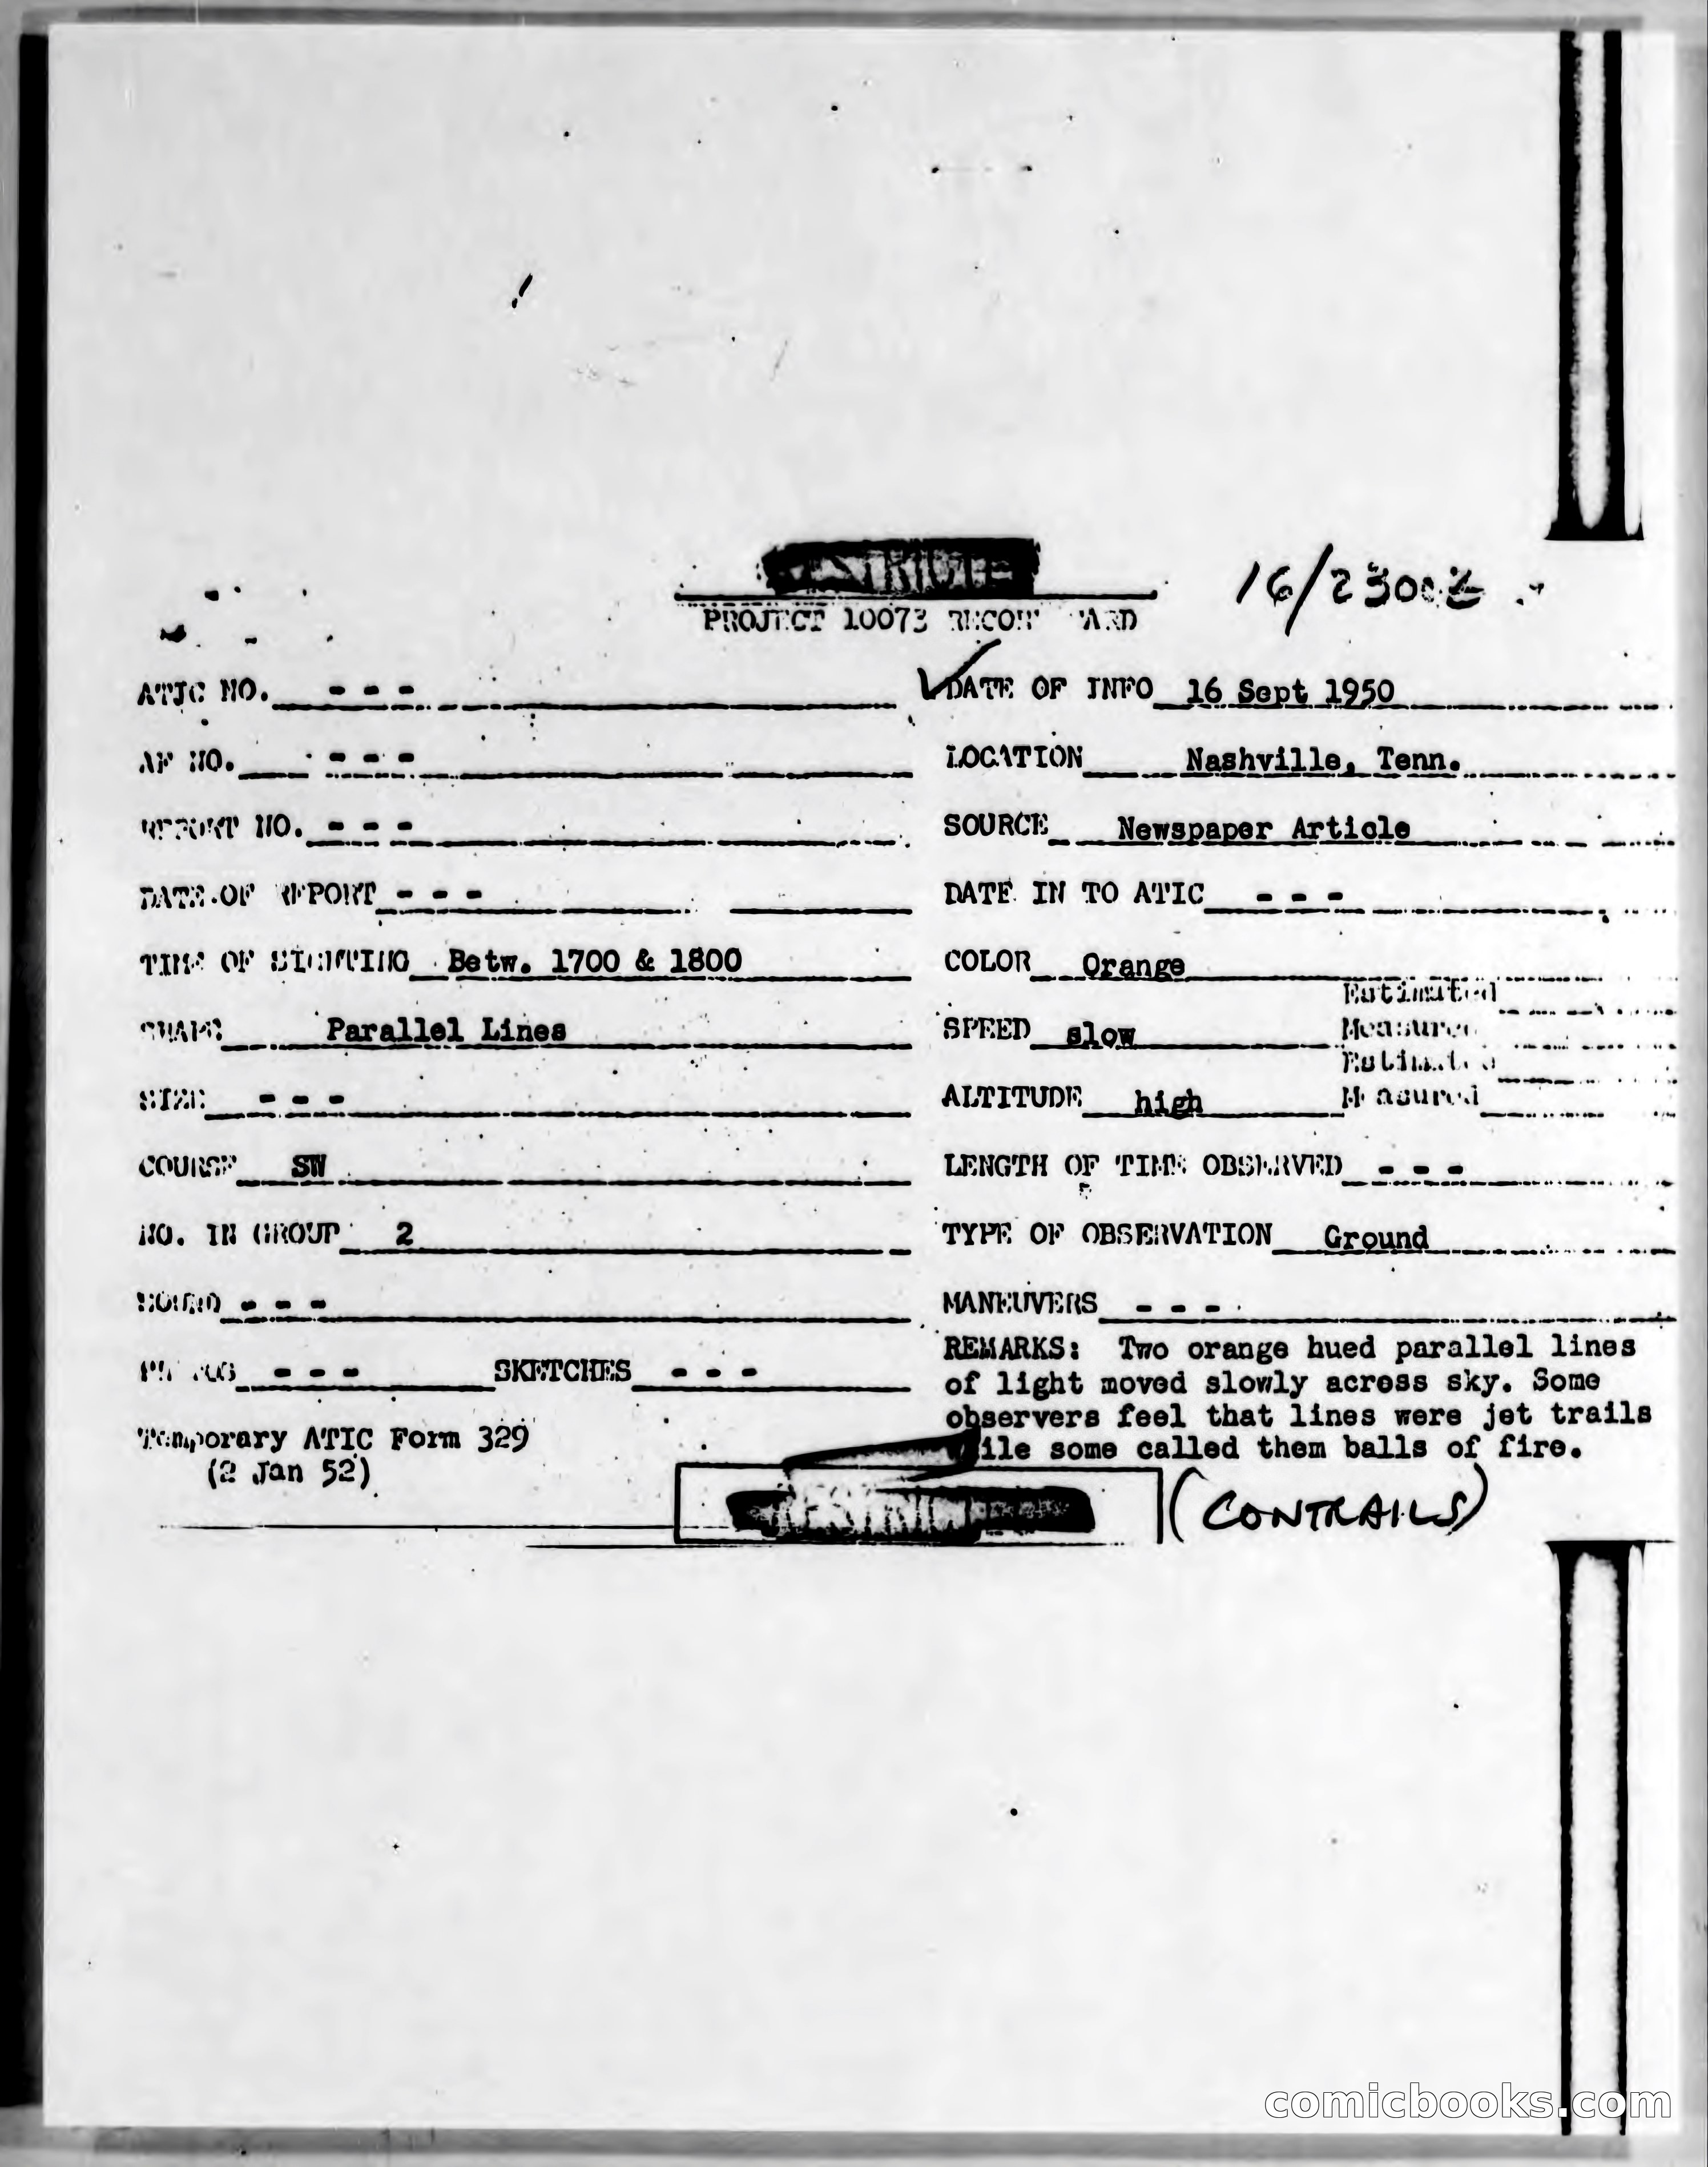 16/2300Z
PROJECT 10073 RECORD CARD
ATIC NO. - - -
DATE OF INFO 16 Sept 1950
AF NO. - - -
LOCATION Nashville, Tenn.
REPORT NO. - - -
SOURCE Newspaper Article
DATE OF REPORT - - -
DATE IN TO ATIC - - -
TIME OF SIGHTING Betw. 1700 & 1800
COLOR Orange
SHAPE Parallel Lines
SPEED slow
Estimated
Measured
SIZE - - -
ALTITUDE high
Estimated
Measured
COURSE SW
LENGTH OF TIME OBSERVED - - -
NO. IN GROUP 2
TYPE OF OBSERVATION Ground
SOUND - - -
MANEUVERS - - -
PHOTOS - - - SKETCHES - - -
REMARKS: Two orange hued parallel lines
of light moved slowly across sky. Some
observers feel that lines were jet trails
while some called them balls of fire.
Temporary ATIC Form 329
(2 Jan 52)
(CONTRAILS)
comicbooks.com